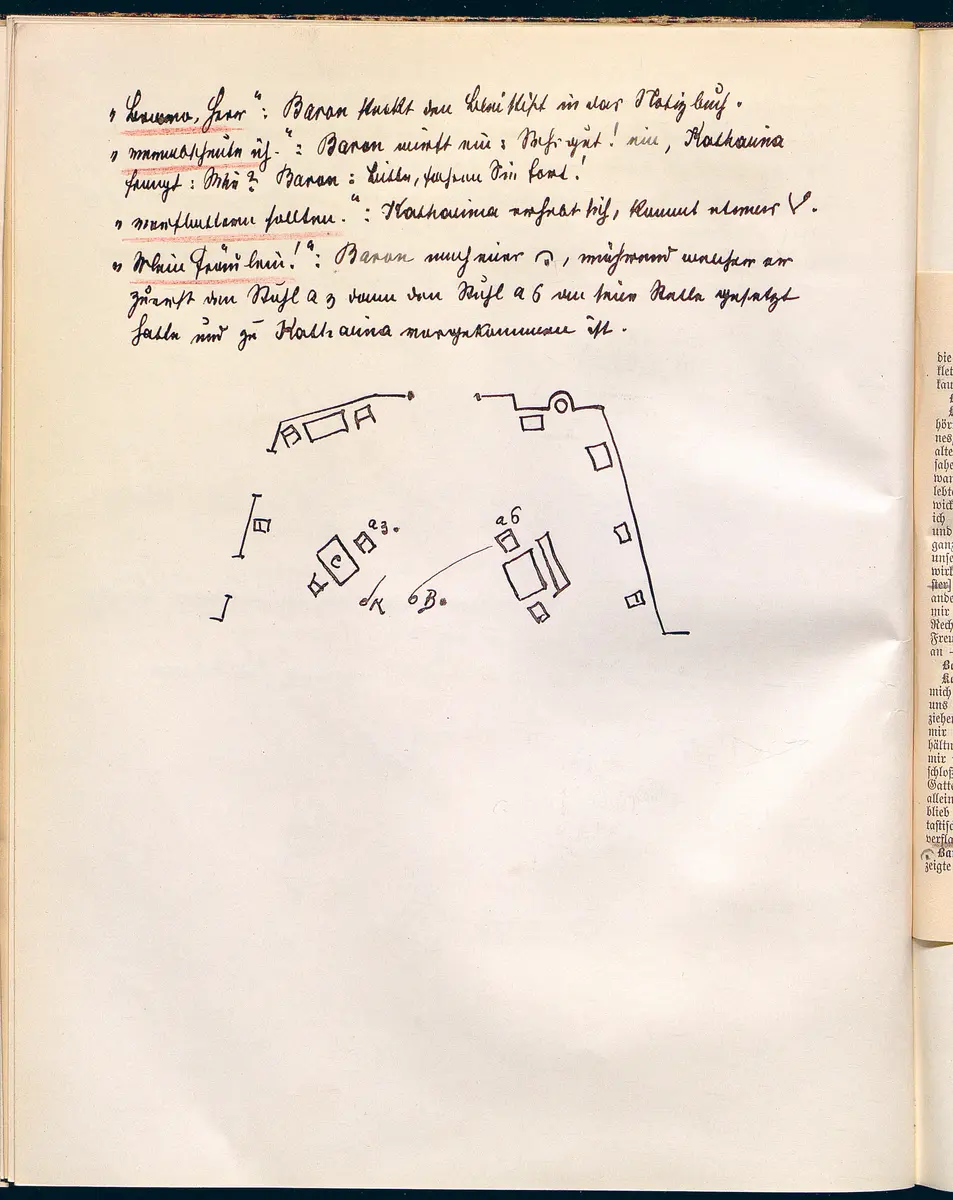 „Bravo, Herr“: Baron steckt den Bleistift in das Notizbuch.
„verabscheute ich.“: Baron wirft ein: Sehr gut! ein, Katharina
fragt: Wie? Baron: Bitte, fahren Sie fort!
„verflattern sollten.“: Katharina erhebt sich, kommt etwas V.
„Mein Fräulein!“: Baron nach einer, während welcher er
zuerst den Stuhl a 3 dann den Stuhl a 6 an seine Stelle gesetzt
hatte und zu Katharina vorgekommen ist.
a 3.
a 6
C
K
B.
die
klei
kau
hör
nes
alte
sahe
war
lebt
wick
ich
und
gan
unse
wirk
ande
mir
Rech
Freu
an –
Ba
Ka
mich
uns
ziehen
mir
hältn
mir
schloß
Gatte
allein
blieb
tastisch
verfla
Bar
zeigte